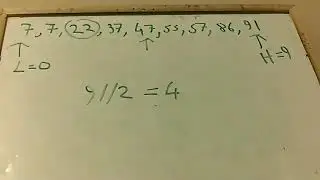 7, 7, 22, 37, 47, 55, 57, 86, 91
L=0 H=9
9//2 = 4